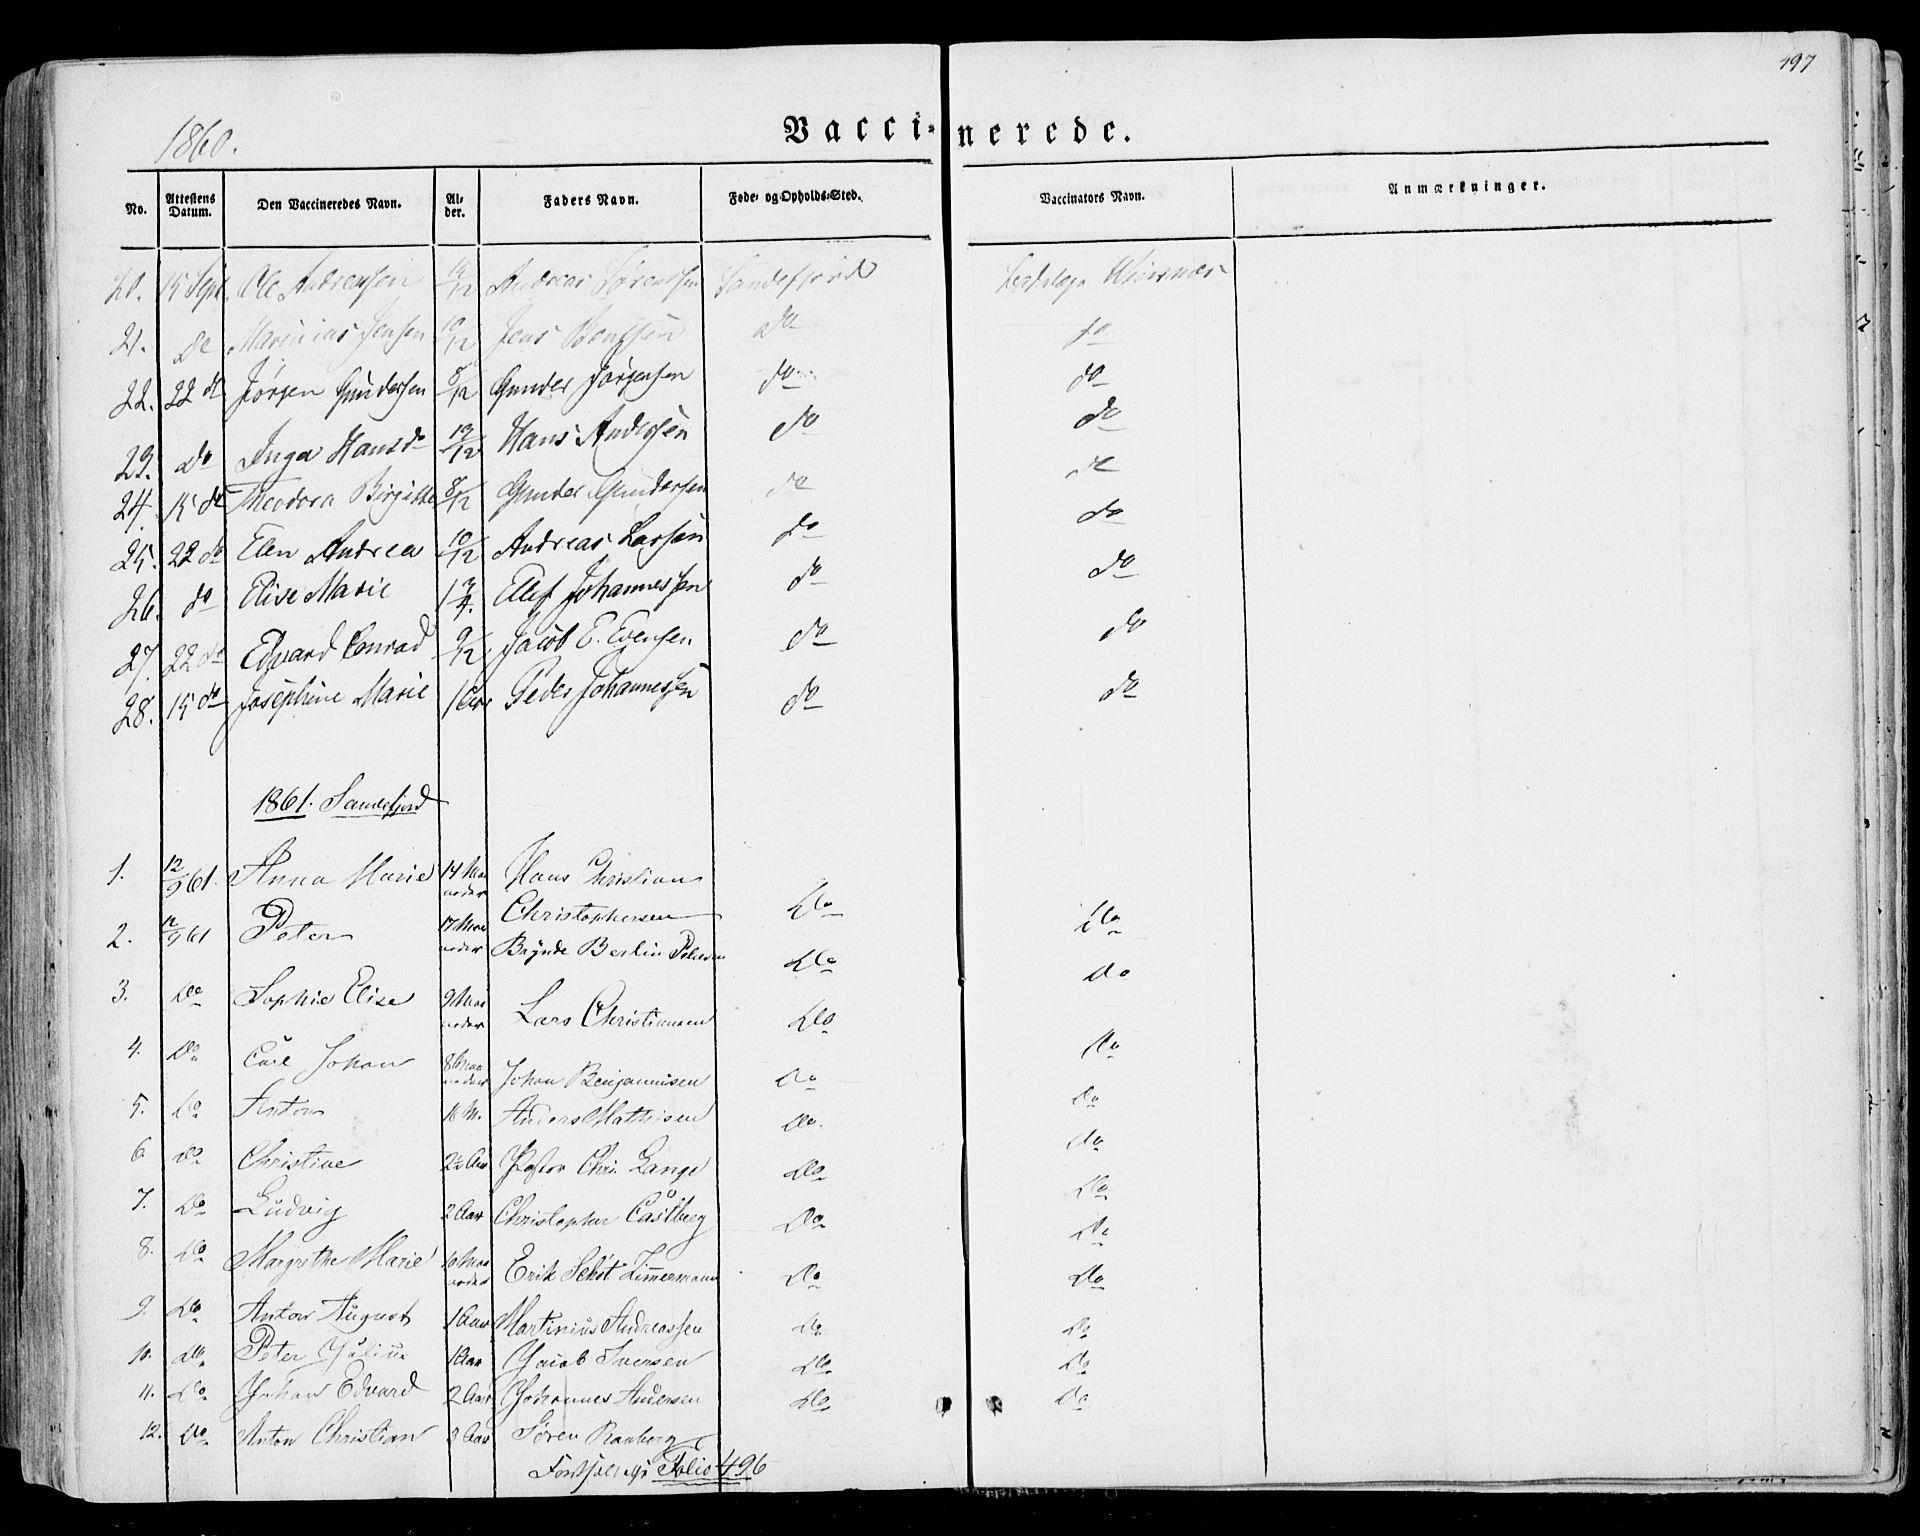 497
1860.
Vaccinerede.
No. Attestens Datum. Den Vaccineredes Navn. Alder. Faders Navn. Føde- og Opholds-Sted. Vaccinators Navn. Anmærkninger.
20. 15 Sept. Ole Andreassen 14/12 Andreas Sørenssen Sandefjord
21. do Marinius Jensen 10/12 Jens Bentsen do do
22. 22 do Jørgen Gundersen 8/12 Gunder Jørgensen do do
23. do Inga Hansd 13/12 Hans Andersen do do
24. 15 do Theodora Birgitte 8/12 Gunder Gundersen do do
25. 22 do Elen Andrea 10/12 Andreas Larsen do do
26. do Elise Marie 1 3/4. Ellef Johannessen do do
27. 22 do Edvard Conrad 9/12 Jacob E. Evensen do do
28. 15 do Josephine Marie 1 Aar Peder Johannessen do do
1861. Sandefjord
1. 12/9 61. Anna Marie 14 Maaneder Hans Christian
Christophersen Do Do
2. 12/9 61 Peter 17 Maaneder Brynde Berlin Pedersen Do Do
3. Do Sophie Elise 9 Maaneder Lars Christiansen Do Do
4. Do Carl Johan 8 Maaneder Johan Benjaminsen Do Do
5. Do Anton 16 M. Anders Mathisen Do Do
6 Do Christine 2½ Aar Pastor Chr. Lange Do Do
7. Do Ludvig 2 Aar Christopher Castberg Do Do
8. Do Margrethe Marie 10 Maaneder Erik Schøt Zimmermann Do Do
9. Do Anton August 1 Aar Martinius Andreassen Do Do
10. Do Peter Julius 1 Aar Jacob Iversen Do Do
11. Do Johan Edvard 2 Aar Johannes Andersen Do Do
12. Do Anton Christian 3 Aar Søren Ranberg
Fortsættes Folio 496